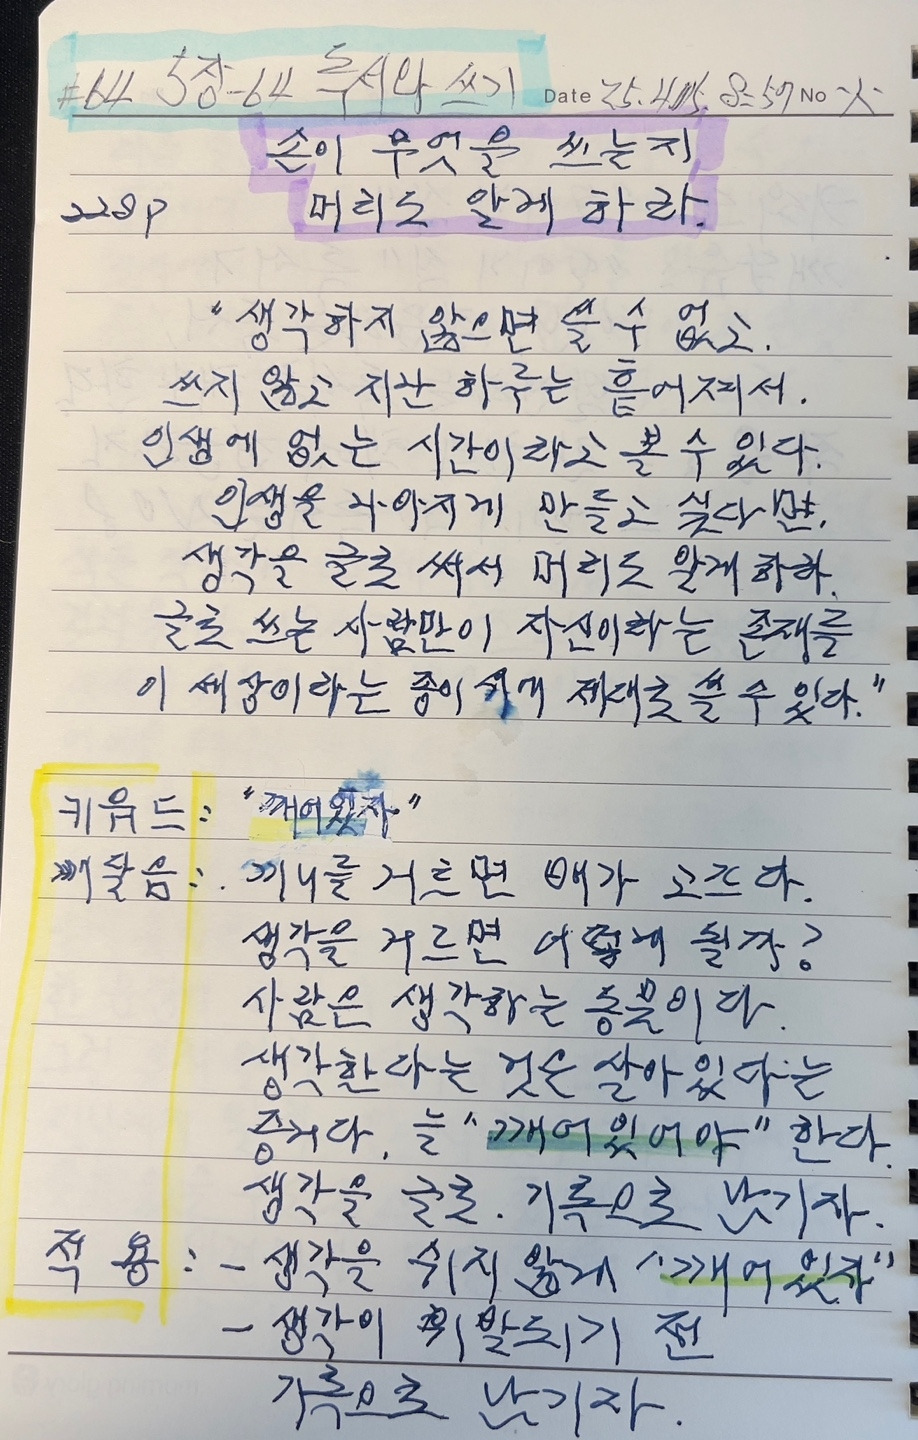 #64 5장-64 독서와 쓰기 Date 25.4.15. 8:57 No
손이 무엇을 쓰는지
228p 머리도 알게 하라.
"생각하지 않으면 쓸 수 없고.
쓰지 않고 지난 하루는 흩어져서.
인생에 없는 시간이라고 볼 수 있다.
인생을 나아지게 만들고 싶다면.
생각을 글로 써서 머리도 알게 하라.
글로 쓰는 사람만이 자신이라는 존재를
이 세상이라는 종이 위에 제대로 쓸 수 있다."
키워드 : "깨어있자"
깨달음 : 끼니를 거르면 배가 고프다.
생각을 거르면 어떻게 될까?
사람은 생각하는 동물이다.
생각한다는 것은 살아있다는
증거다. 늘 "깨어있어야" 한다.
생각을 글로. 기록으로 남기자.
적용 : - 생각을 쉬지 않게 "깨어있자"
- 생각이 휘발되기 전
기록으로 남기자.